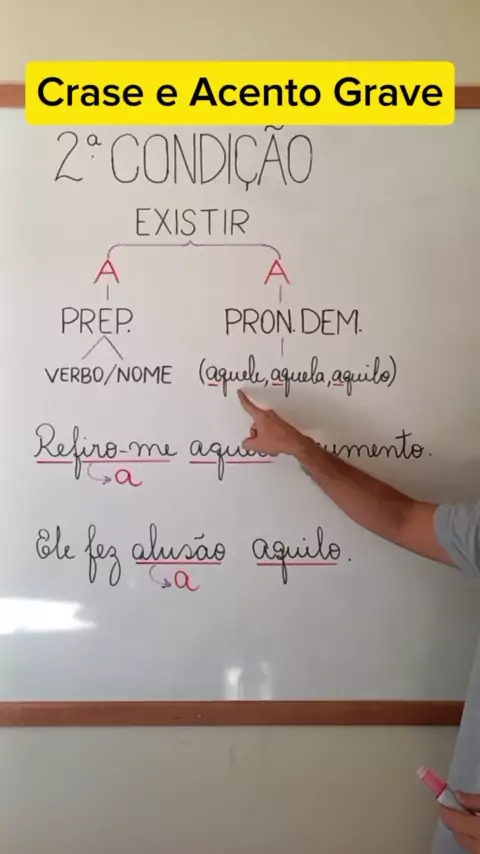 Crase e Acento Grave
2ª CONDIÇÃO
EXISTIR
A A
PREP. PRON. DEM.
VERBO/NOME (aquele, aquela, aquilo)
Refiro-me
a
Ele fez alusão aquilo.
a